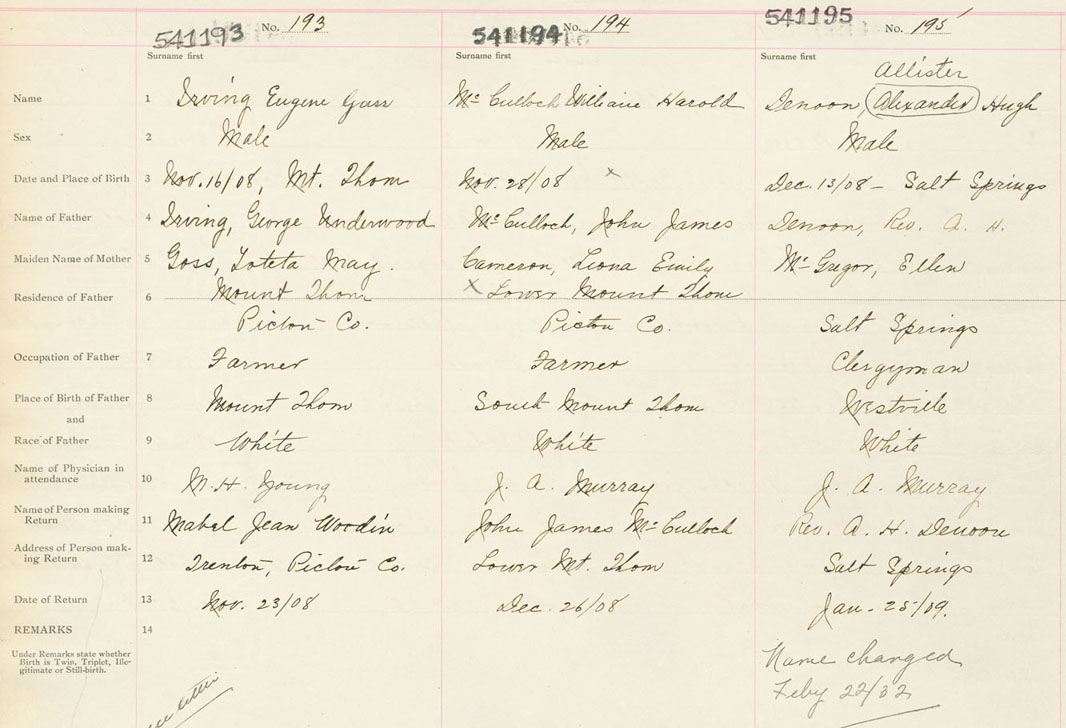 541193 No. 193 541194 No. 194 541195 No. 195
Surname first Surname first Surname first
Allister
Name 1 Irving Eugene Guss McCulloch William Harold Denoon, (Alexander) Hugh
Sex 2 Male Male Male
Date and Place of Birth 3 Nov. 16/08, Mt. Thom Nov. 28/08 x Dec. 13/08 - Salt Springs
Name of Father 4 Irving, George Underwood McCulloch, John James Denoon, Rev. A. H.
Maiden Name of Mother 5 Goss, Toteta May. Cameron, Leona Emily McGregor, Ellen
Residence of Father 6 Mount Thom x Lower Mount Thom
Pictou Co. Pictou Co. Salt Springs
Occupation of Father 7 Farmer Farmer Clergyman
Place of Birth of Father 8 Mount Thom South Mount Thom Westville
and
Race of Father 9 White White White
Name of Physician in
attendance 10 M. H. Young J. A. Murray J. A. Murray
Name of Person making
Return 11 Mabel Jean Woodin John James McCulloch Rev. A. H. Denoon
Address of Person mak-
ing Return 12 Trenton, Pictou Co. Lower Mt. Thom Salt Springs
Date of Return 13 Nov. 23/08 Dec. 26/08 Jan. 25/09.
REMARKS 14
Under Remarks state whether
Birth is Twin, Triplet, Ille-
gitimate or Still-birth.
Name changed
Feby 22/32